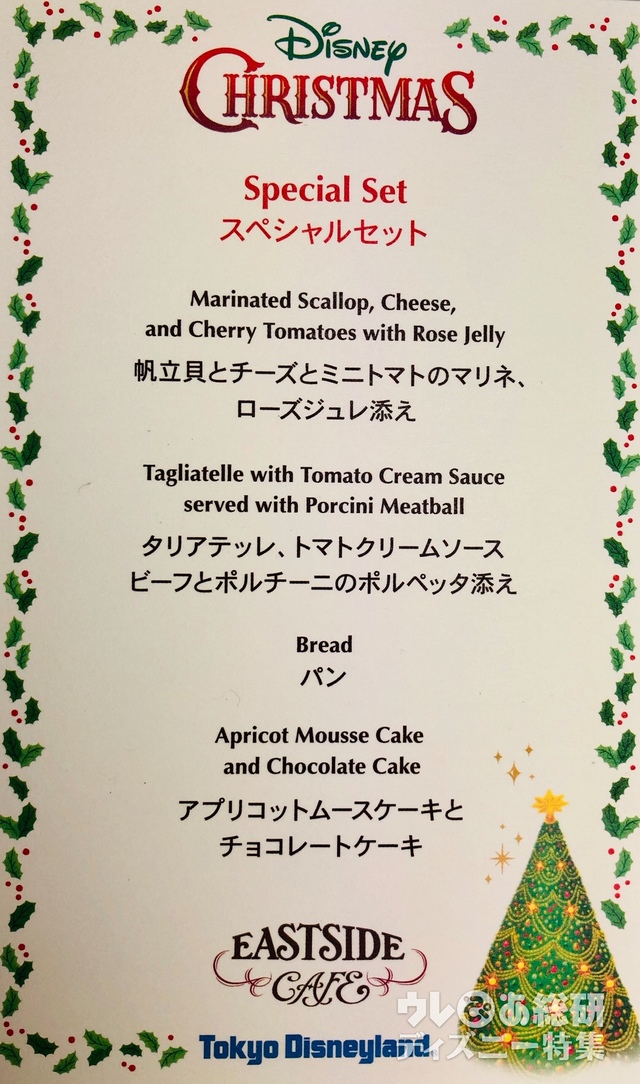 Disney
CHRISTMAS
Special Set
スペシャルセット
Marinated Scallop, Cheese,
and Cherry Tomatoes with Rose Jelly
帆立貝とチーズとミニトマトのマリネ、
ローズジュレ添え
Tagliatelle with Tomato Cream Sauce
served with Porcini Meatball
タリアテッレ、トマトクリームソース
ビーフとポルチーニのポルペッタ添え
Bread
パン
Apricot Mousse Cake
and Chocolate Cake
アプリコットムースケーキと
チョコレートケーキ
EASTSIDE
CAFE
ウレぴあ総研
Tokyo Disneyland
ディズニー特集